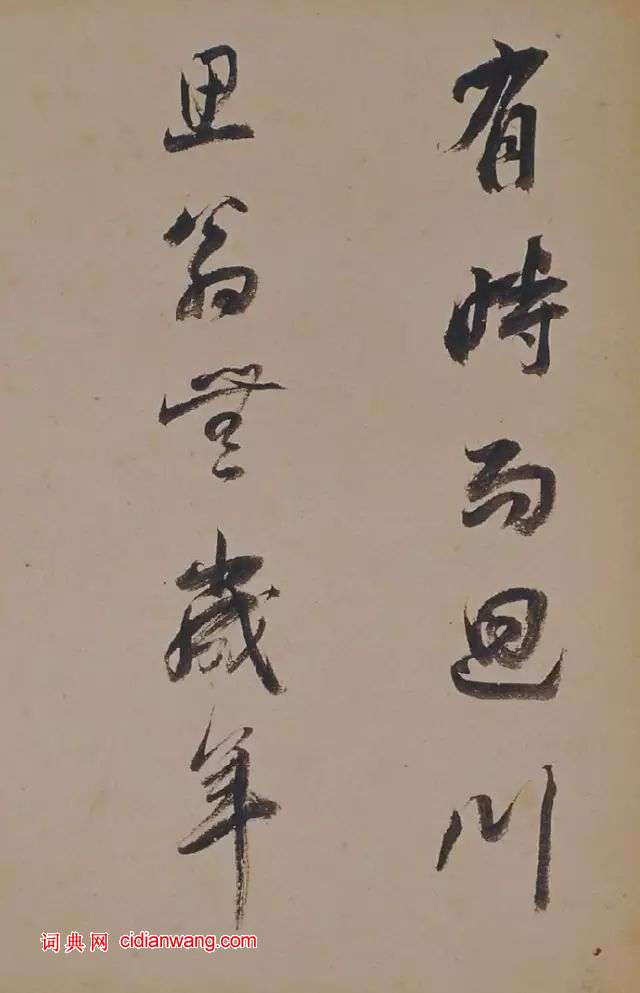 有時而迴川
思翁無歲年
词典网 cidianwang.com